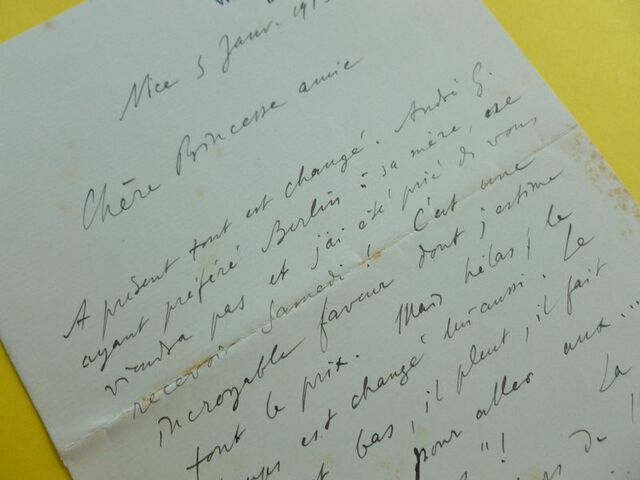 Nice 5 Janv. 191
Chère Princesse amie
A présent tout est changé. André G.
ayant préféré Berlin à sa mère, ne
viendra pas et j'ai été prié de vous
recevoir Samedi! C'est une
incroyable faveur dont j'estime
tout le prix. Mais hélas! le
temps est changé lui aussi. Le
bas, il pleut, il fait
pour aller aux..."
"! La